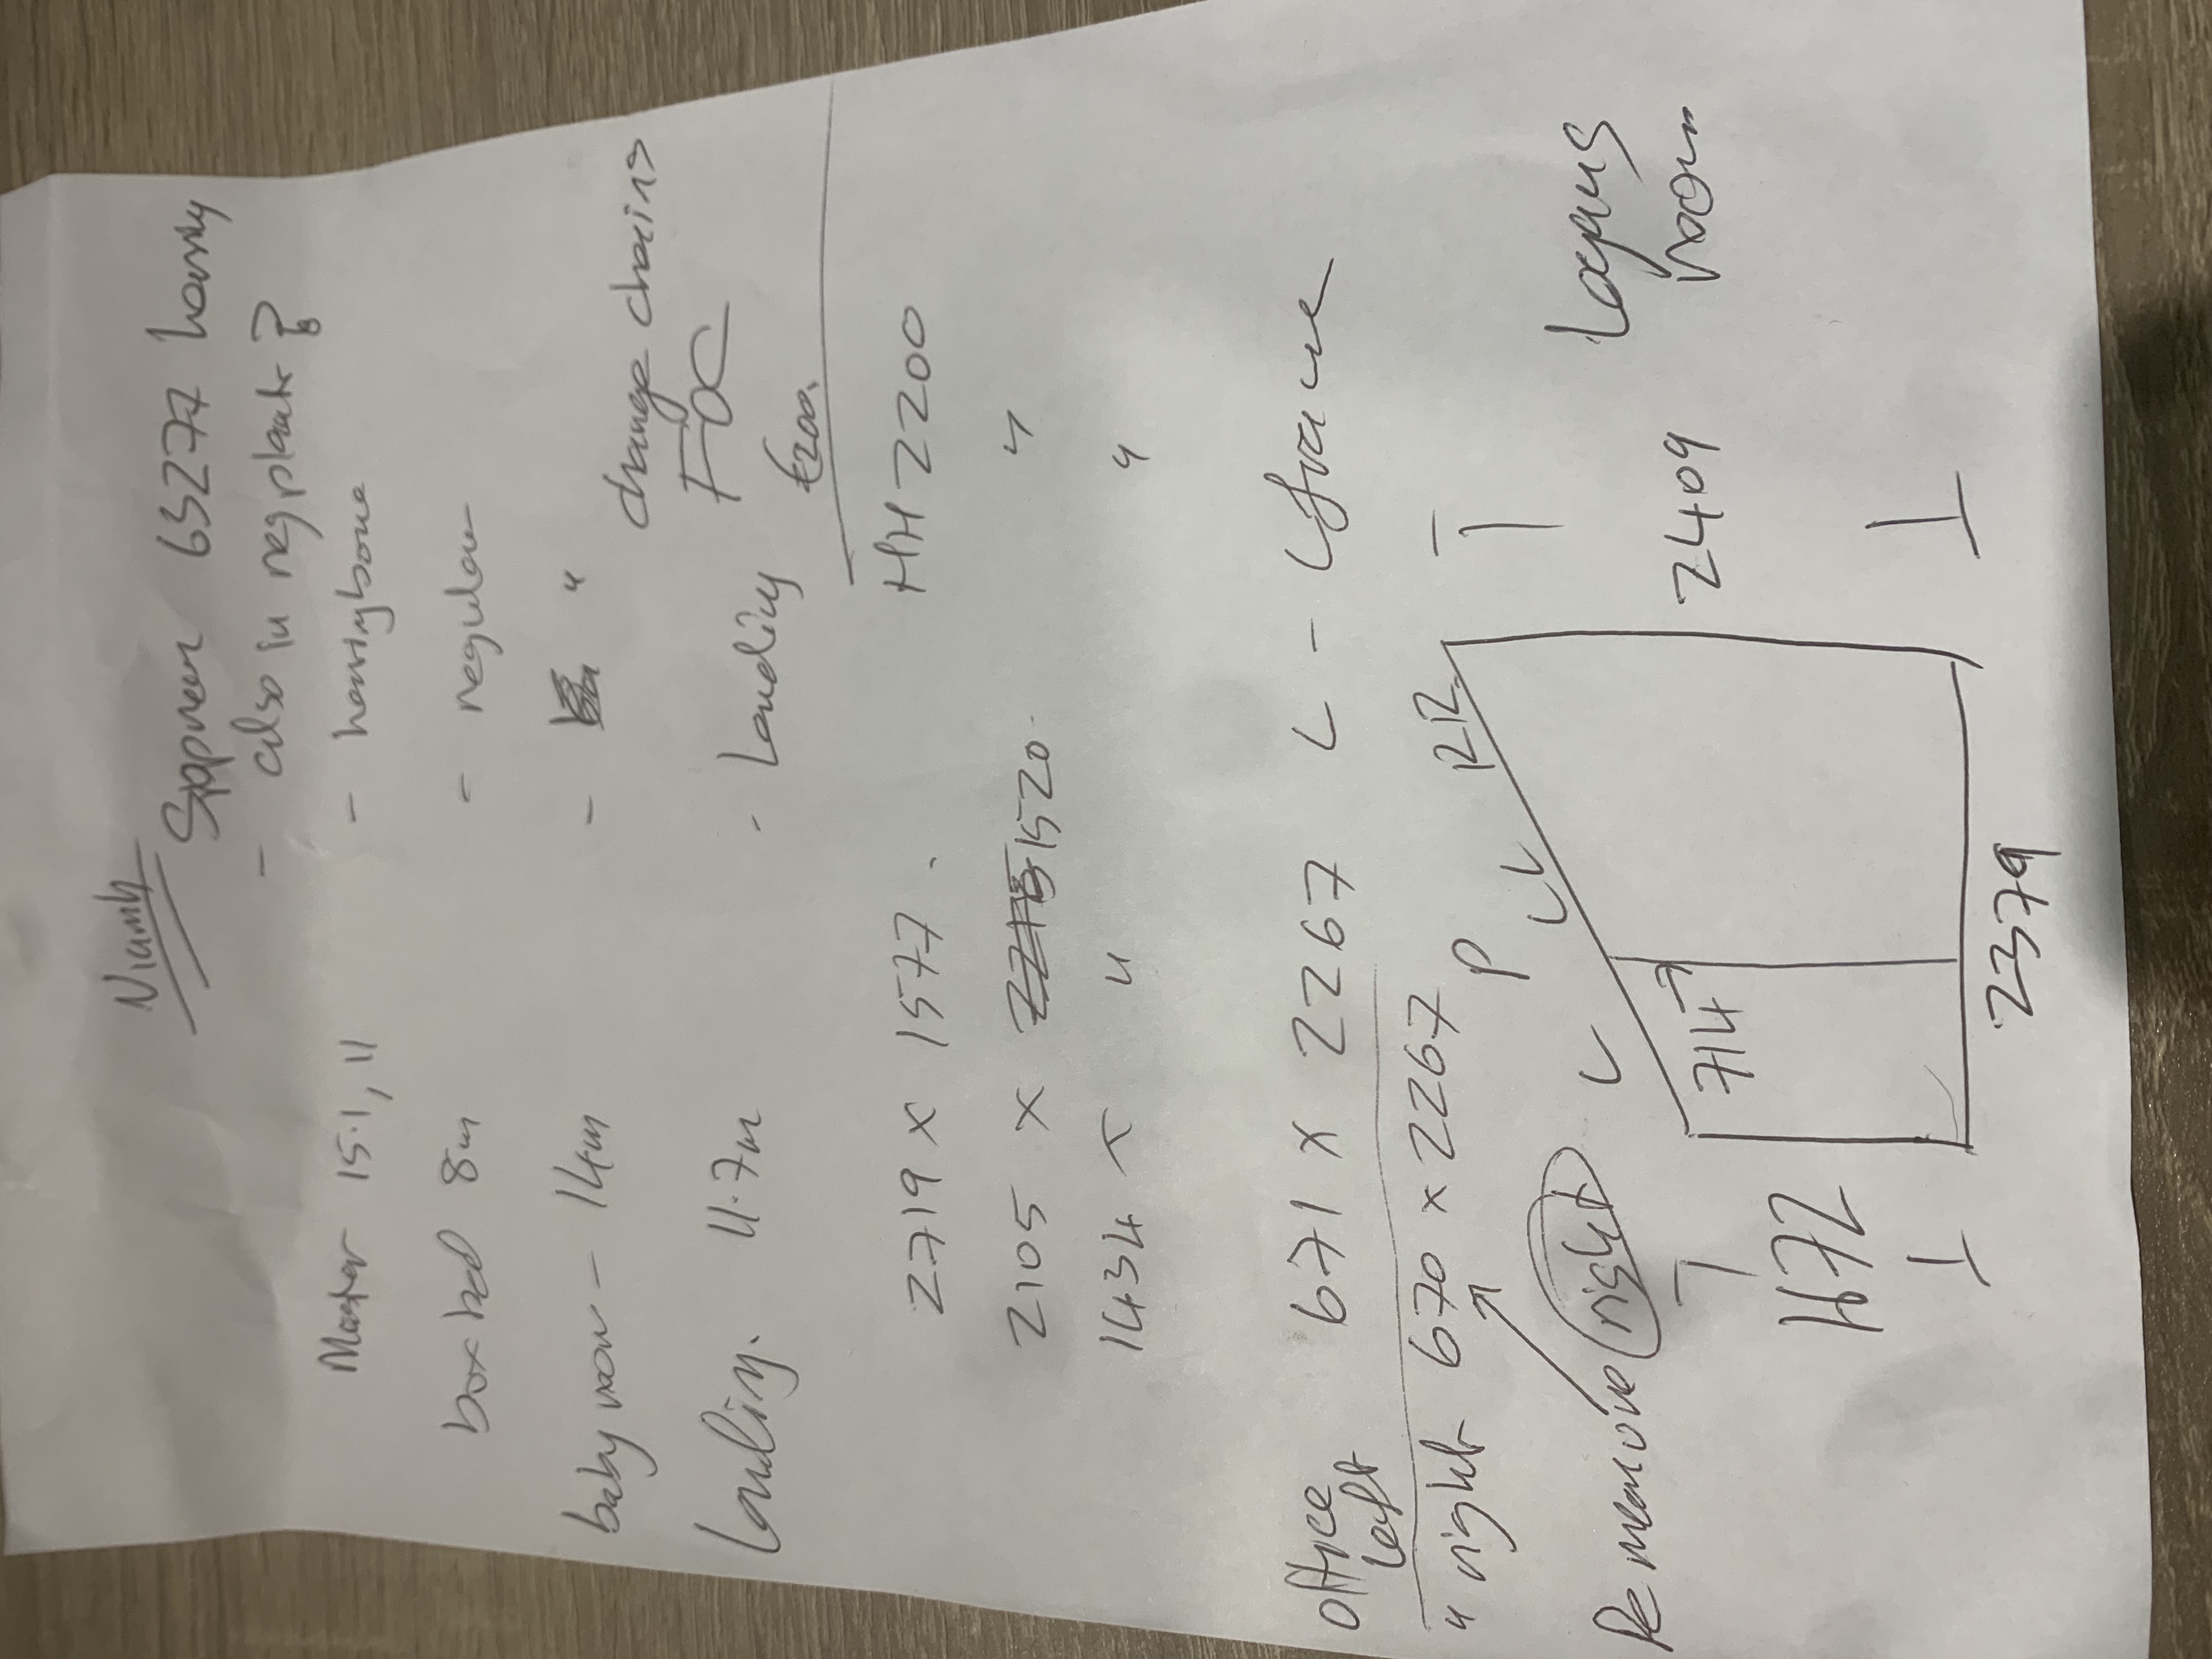 Niamh
63277 
- also in reg plank?
Master 15.1, 11 - herringbone
box bed 8m - regular
baby room - 14m - "
change chains
FOC
Landing. 11.7m - Landing
€200.
2719 x 1577. HH 2200
2105 x 1520. "
1434 x " "
Office
Left 671 x 2267 L - Lframe
" right 670 x 2267
Remove right
L P LL RR
714
1172
2409
2379
room